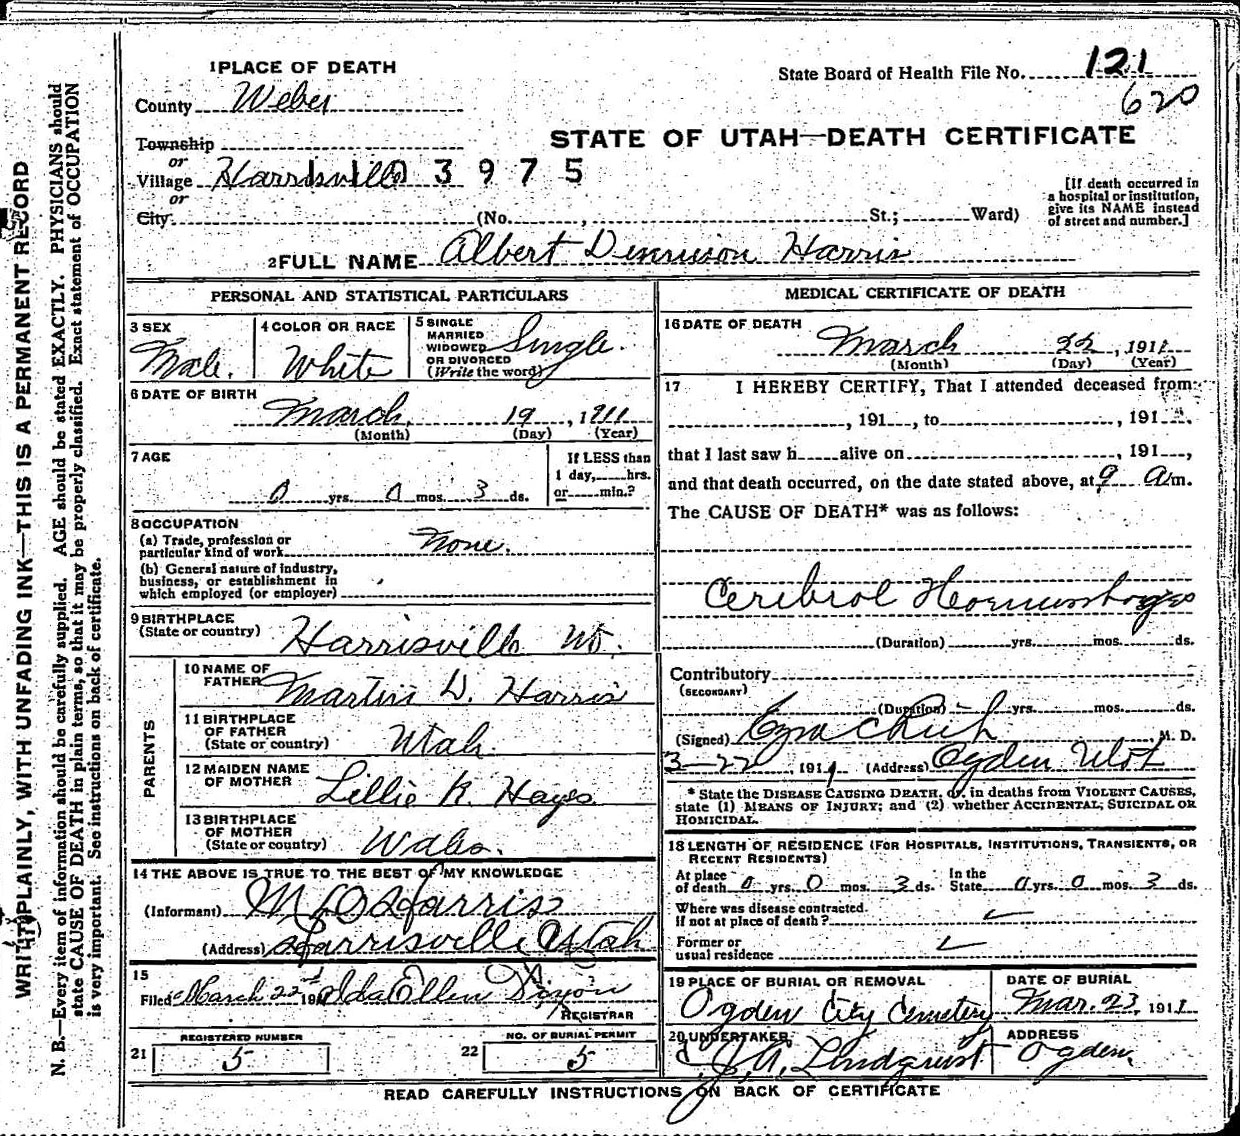 1 PLACE OF DEATH
State Board of Health File No. 121
County Weber
620
Township
STATE OF UTAH—DEATH CERTIFICATE
or
Village Harrisville 3975
or
City (No. , St.; Ward)
[If death occurred in a hospital or institution, give its NAME instead of street and number.]
2 FULL NAME Albert Dennison Harris
PERSONAL AND STATISTICAL PARTICULARS
3 SEX
Male.
4 COLOR OR RACE
White
5 SINGLE MARRIED WIDOWED OR DIVORCED (Write the word)
Single.
6 DATE OF BIRTH
March 19, 1911
(Month) (Day) (Year)
7 AGE
0 yrs. 0 mos. 3 ds.
If LESS than 1 day, hrs. or min.?
8 OCCUPATION
(a) Trade, profession or particular kind of work None.
(b) General nature of industry, business, or establishment in which employed (or employer)
9 BIRTHPLACE (State or country) Harrisville Ut.
PARENTS
10 NAME OF FATHER Martin D. Harris
11 BIRTHPLACE OF FATHER (State or country) Utah
12 MAIDEN NAME OF MOTHER Lillie K. Hayes
13 BIRTHPLACE OF MOTHER (State or country) Wales.
14 THE ABOVE IS TRUE TO THE BEST OF MY KNOWLEDGE
(Informant) M D Harris
(Address) Harrisville Utah
15
Filed March 22nd 1911 Ida Ellen Dixon
REGISTRAR
REGISTERED NUMBER
21 5
NO. OF BURIAL PERMIT
22 5
MEDICAL CERTIFICATE OF DEATH
16 DATE OF DEATH
March 22, 1911
(Month) (Day) (Year)
17 I HEREBY CERTIFY, That I attended deceased from
, 191 , to , 191 .
that I last saw h alive on , 191 ,
and that death occurred, on the date stated above, at 9 am.
The CAUSE OF DEATH* was as follows:
Ceribrol
(Duration) yrs. mos. ds.
Contributory
(SECONDARY)
(Duration) yrs. mos. ds.
(Signed) Ezra C Rich M. D.
3-22, 1911 (Address) Ogden Utah
* State the DISEASE CAUSING DEATH, or, in deaths from VIOLENT CAUSES, state (1) MEANS OF INJURY; and (2) whether ACCIDENTAL, SUICIDAL OR HOMICIDAL.
18 LENGTH OF RESIDENCE (FOR HOSPITALS, INSTITUTIONS, TRANSIENTS, OR RECENT RESIDENTS)
At place of death 0 yrs. 0 mos. 3 ds. In the State 0 yrs. 0 mos. 3 ds.
Where was disease contracted. if not at place of death?
Former or usual residence
19 PLACE OF BURIAL OR REMOVAL
Ogden City Cemetery
DATE OF BURIAL
Mar. 23, 1911
20 UNDERTAKER
J. A. Lindquist
ADDRESS
Ogden
READ CAREFULLY INSTRUCTIONS ON BACK OF CERTIFICATE
WRITE PLAINLY, WITH UNFADING INK—THIS IS A PERMANENT RECORD
N. B.—Every item of information should be carefully supplied. AGE should be stated EXACTLY. PHYSICIANS should
state CAUSE OF DEATH in plain terms, so that it may be properly classified. Exact statement of OCCUPATION
is very important. See instructions on back of certificate.